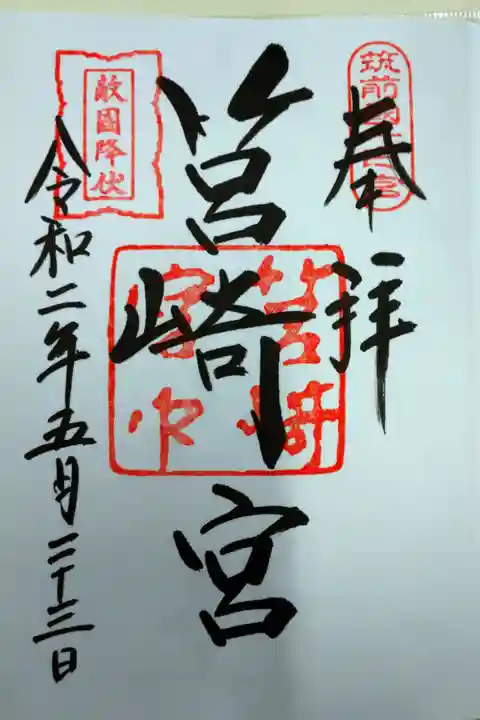 奉拝
筑前國一之宮
筥崎宮
筥崎宮印
敵國降伏
令和二年五月二十三日